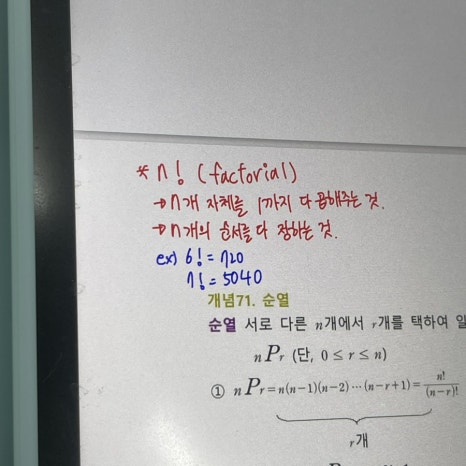 * n! (factorial)
→ n개 자체를 1까지 다 곱해주는 것.
→ n개의 순서를 다 정하는 것.
ex) 6! = 720
7! = 5040
개념71. 순열
순열 서로 다른 n개에서 r개를 택하여 일
nPr (단, 0 ≤ r ≤ n)
① nPr = n(n-1)(n-2)⋯(n-r+1) = n!/(n-r)!
r개